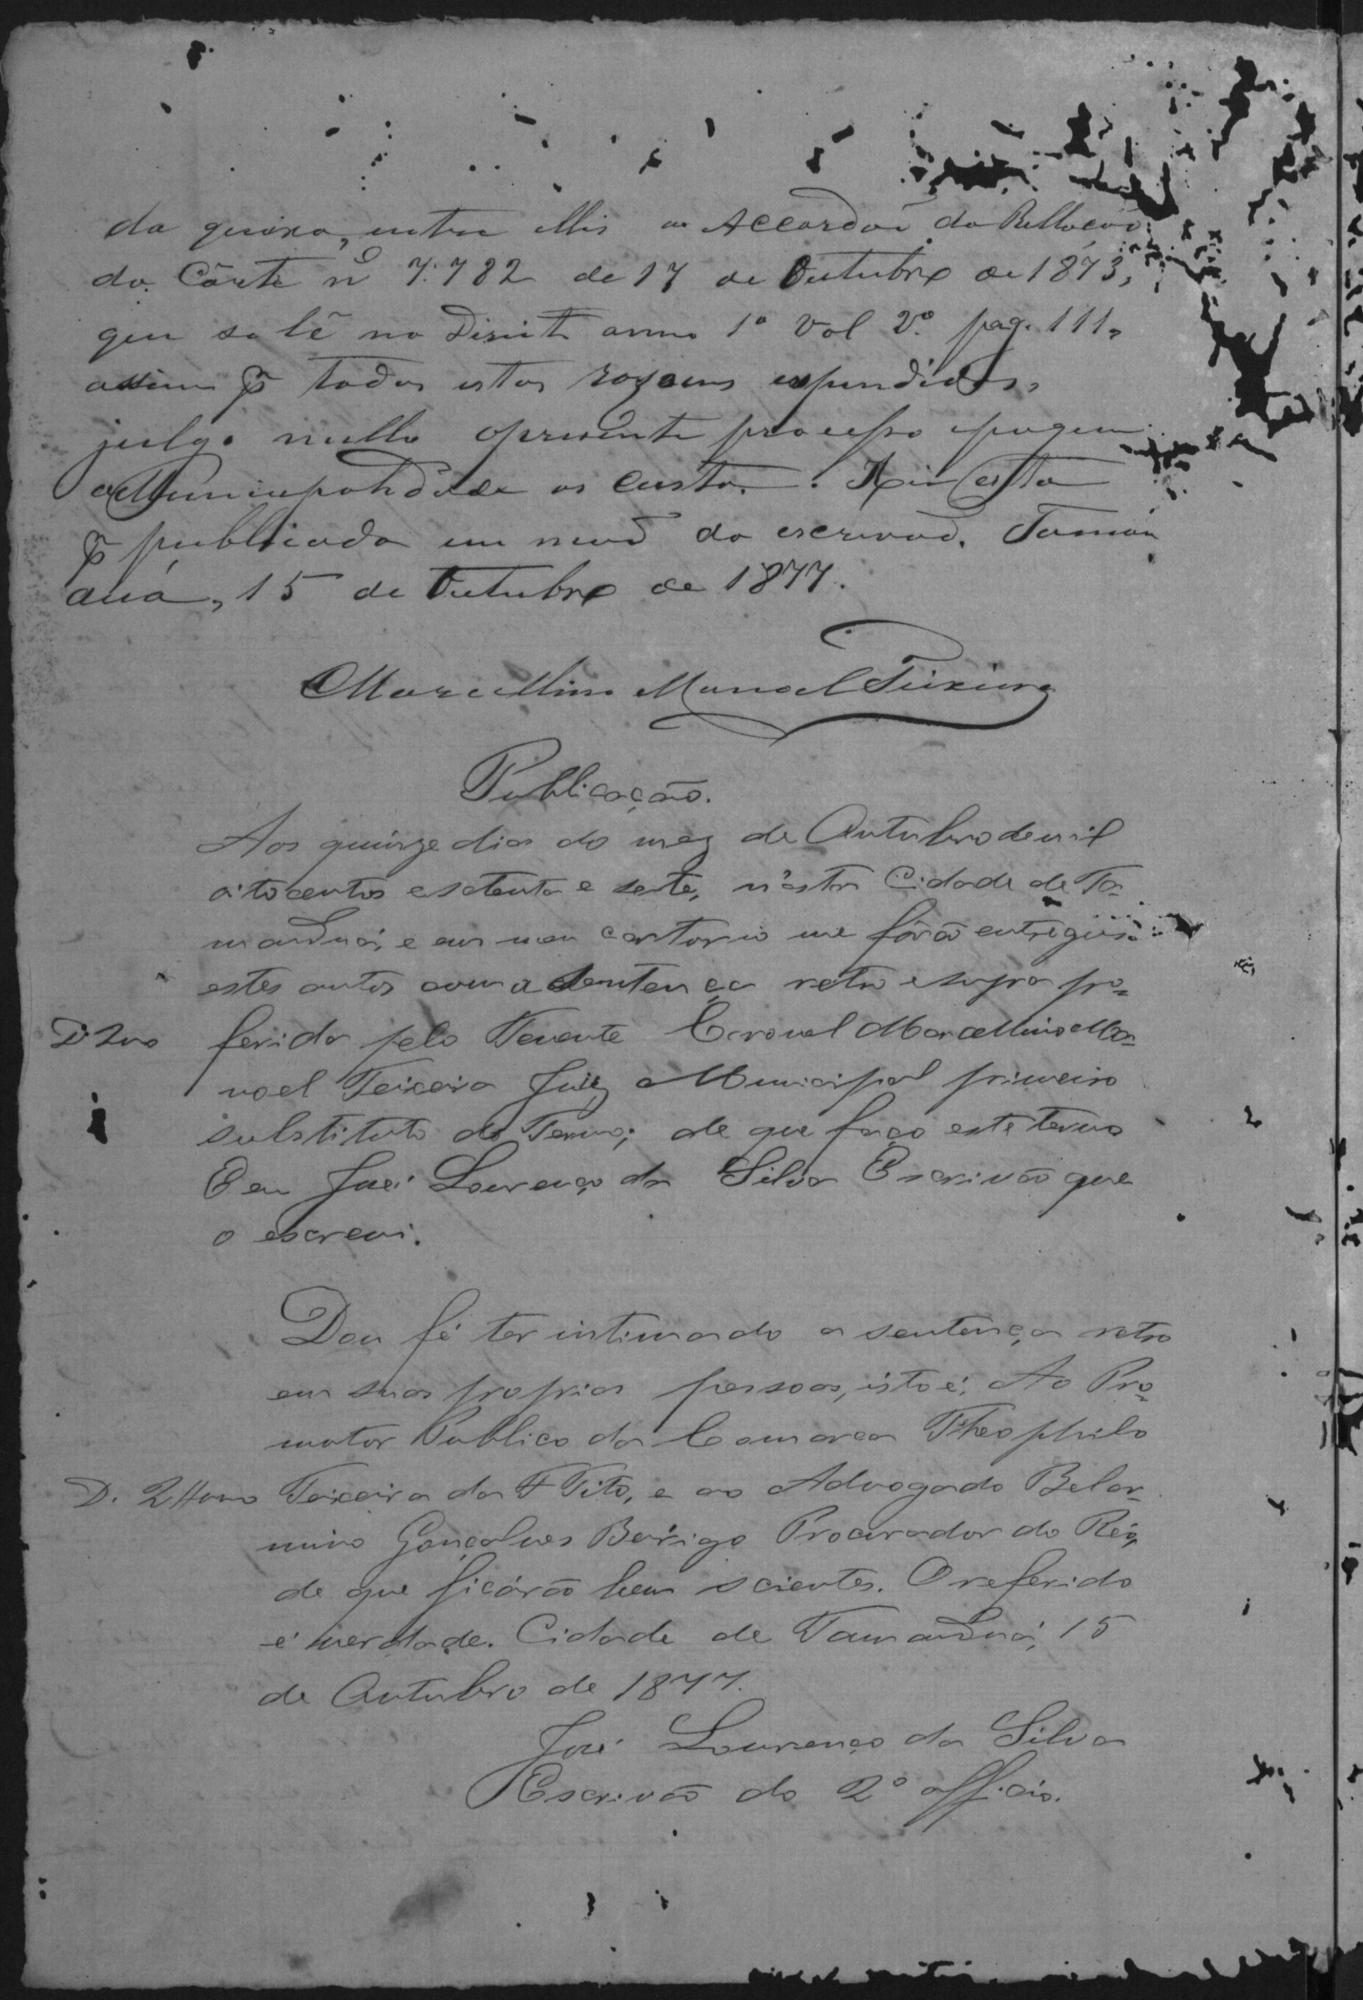 da queixa, entre elles o Accordão da Rellação
da Côrte nº 7.782 de 17 de Outubro de 1873,
que se lê no Direito anno 1º vol 2º pag. 111,
assim p todas estas rasoens expendidas,
julgo nullo o presente processo e pague
a Municipalidade as custas. Hei esta
p publicada em mão do escrivão. Taman
duá, 15 de Outubro de 1877.
Marcellino Manoel Teixeira
Publicação.
Aos quinze dias do mez de Outubro de mil
oitocentos e setenta e sete, n'esta Cidade de Ta-
manduá, e em meu cartorio me forão entregues
estes autos com a sentença retro e supra pro-
ferida pelo Tenente Coronel Marcellino Ma-
noel Teixeira Juiz Municipal primeiro
substituto do Termo; de que faço este termo
E eu José Lourenço da Silva Escrivão que
o escrevi.
Dou fé ter intimado a sentença retro
em suas proprias pessoas, isto é, Ao Pro-
motor Publico da Comarca Theophilo
Teixeira da F Tito, e ao Advogado Belar-
mino Gonçalves Procurador do Réo,
de que ficárão bem scientes. O referido
é verdade. Cidade de Tamanduá, 15
de Outubro de 1877.
José Lourenço da Silva
Escrivão do 2º officio.